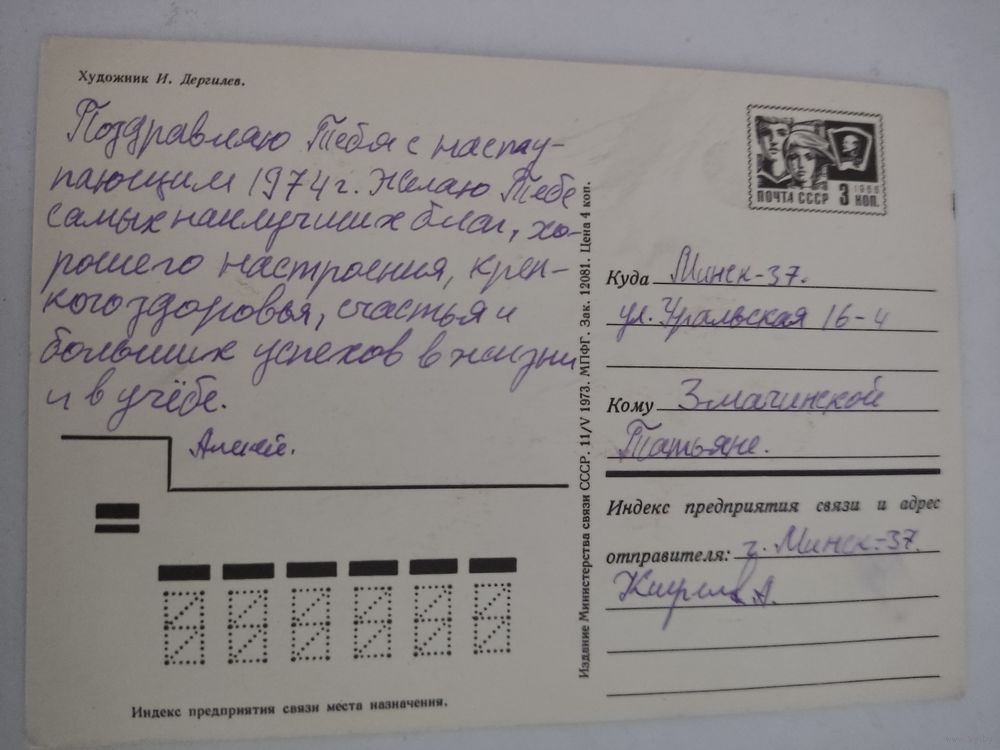 Художник И. Дергилев.
Поздравляю Тебя с насту-
пающим 1974 г. Желаю Тебе
самых наилучших благ, хо-
рошего настроения, креп-
кого здоровья, счастья и
больших успехов в жизни
и в учёбе.
Алексей.
Индекс предприятия связи места назначения.
Издание Министерства связи СССР. 11/V 1973. МПФГ. Зак. 12081. Цена 4 коп.
1966
ПОЧТА СССР 3 КОП.
Куда Минск-37.
ул. Уральская 16-4
Кому Змачинской
Татьяне.
Индекс предприятия связи и адрес
отправителя: г. Минск-37.
А.